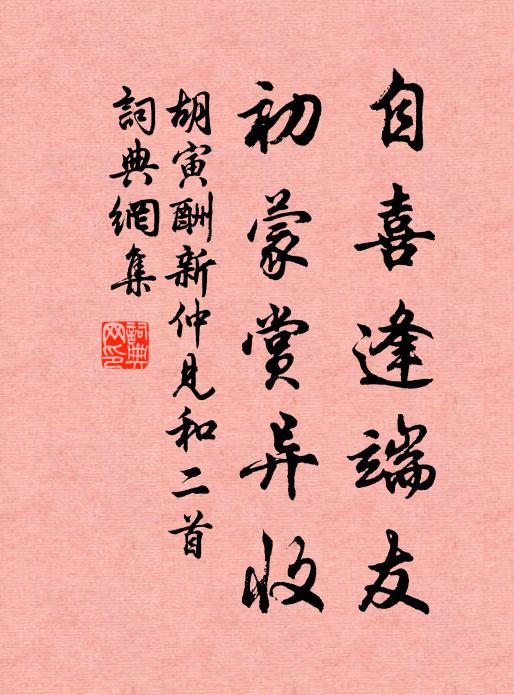 自喜逢端友
初蒙赏异收
胡寅酬新仲见和二首
詞典網集
詞典网印